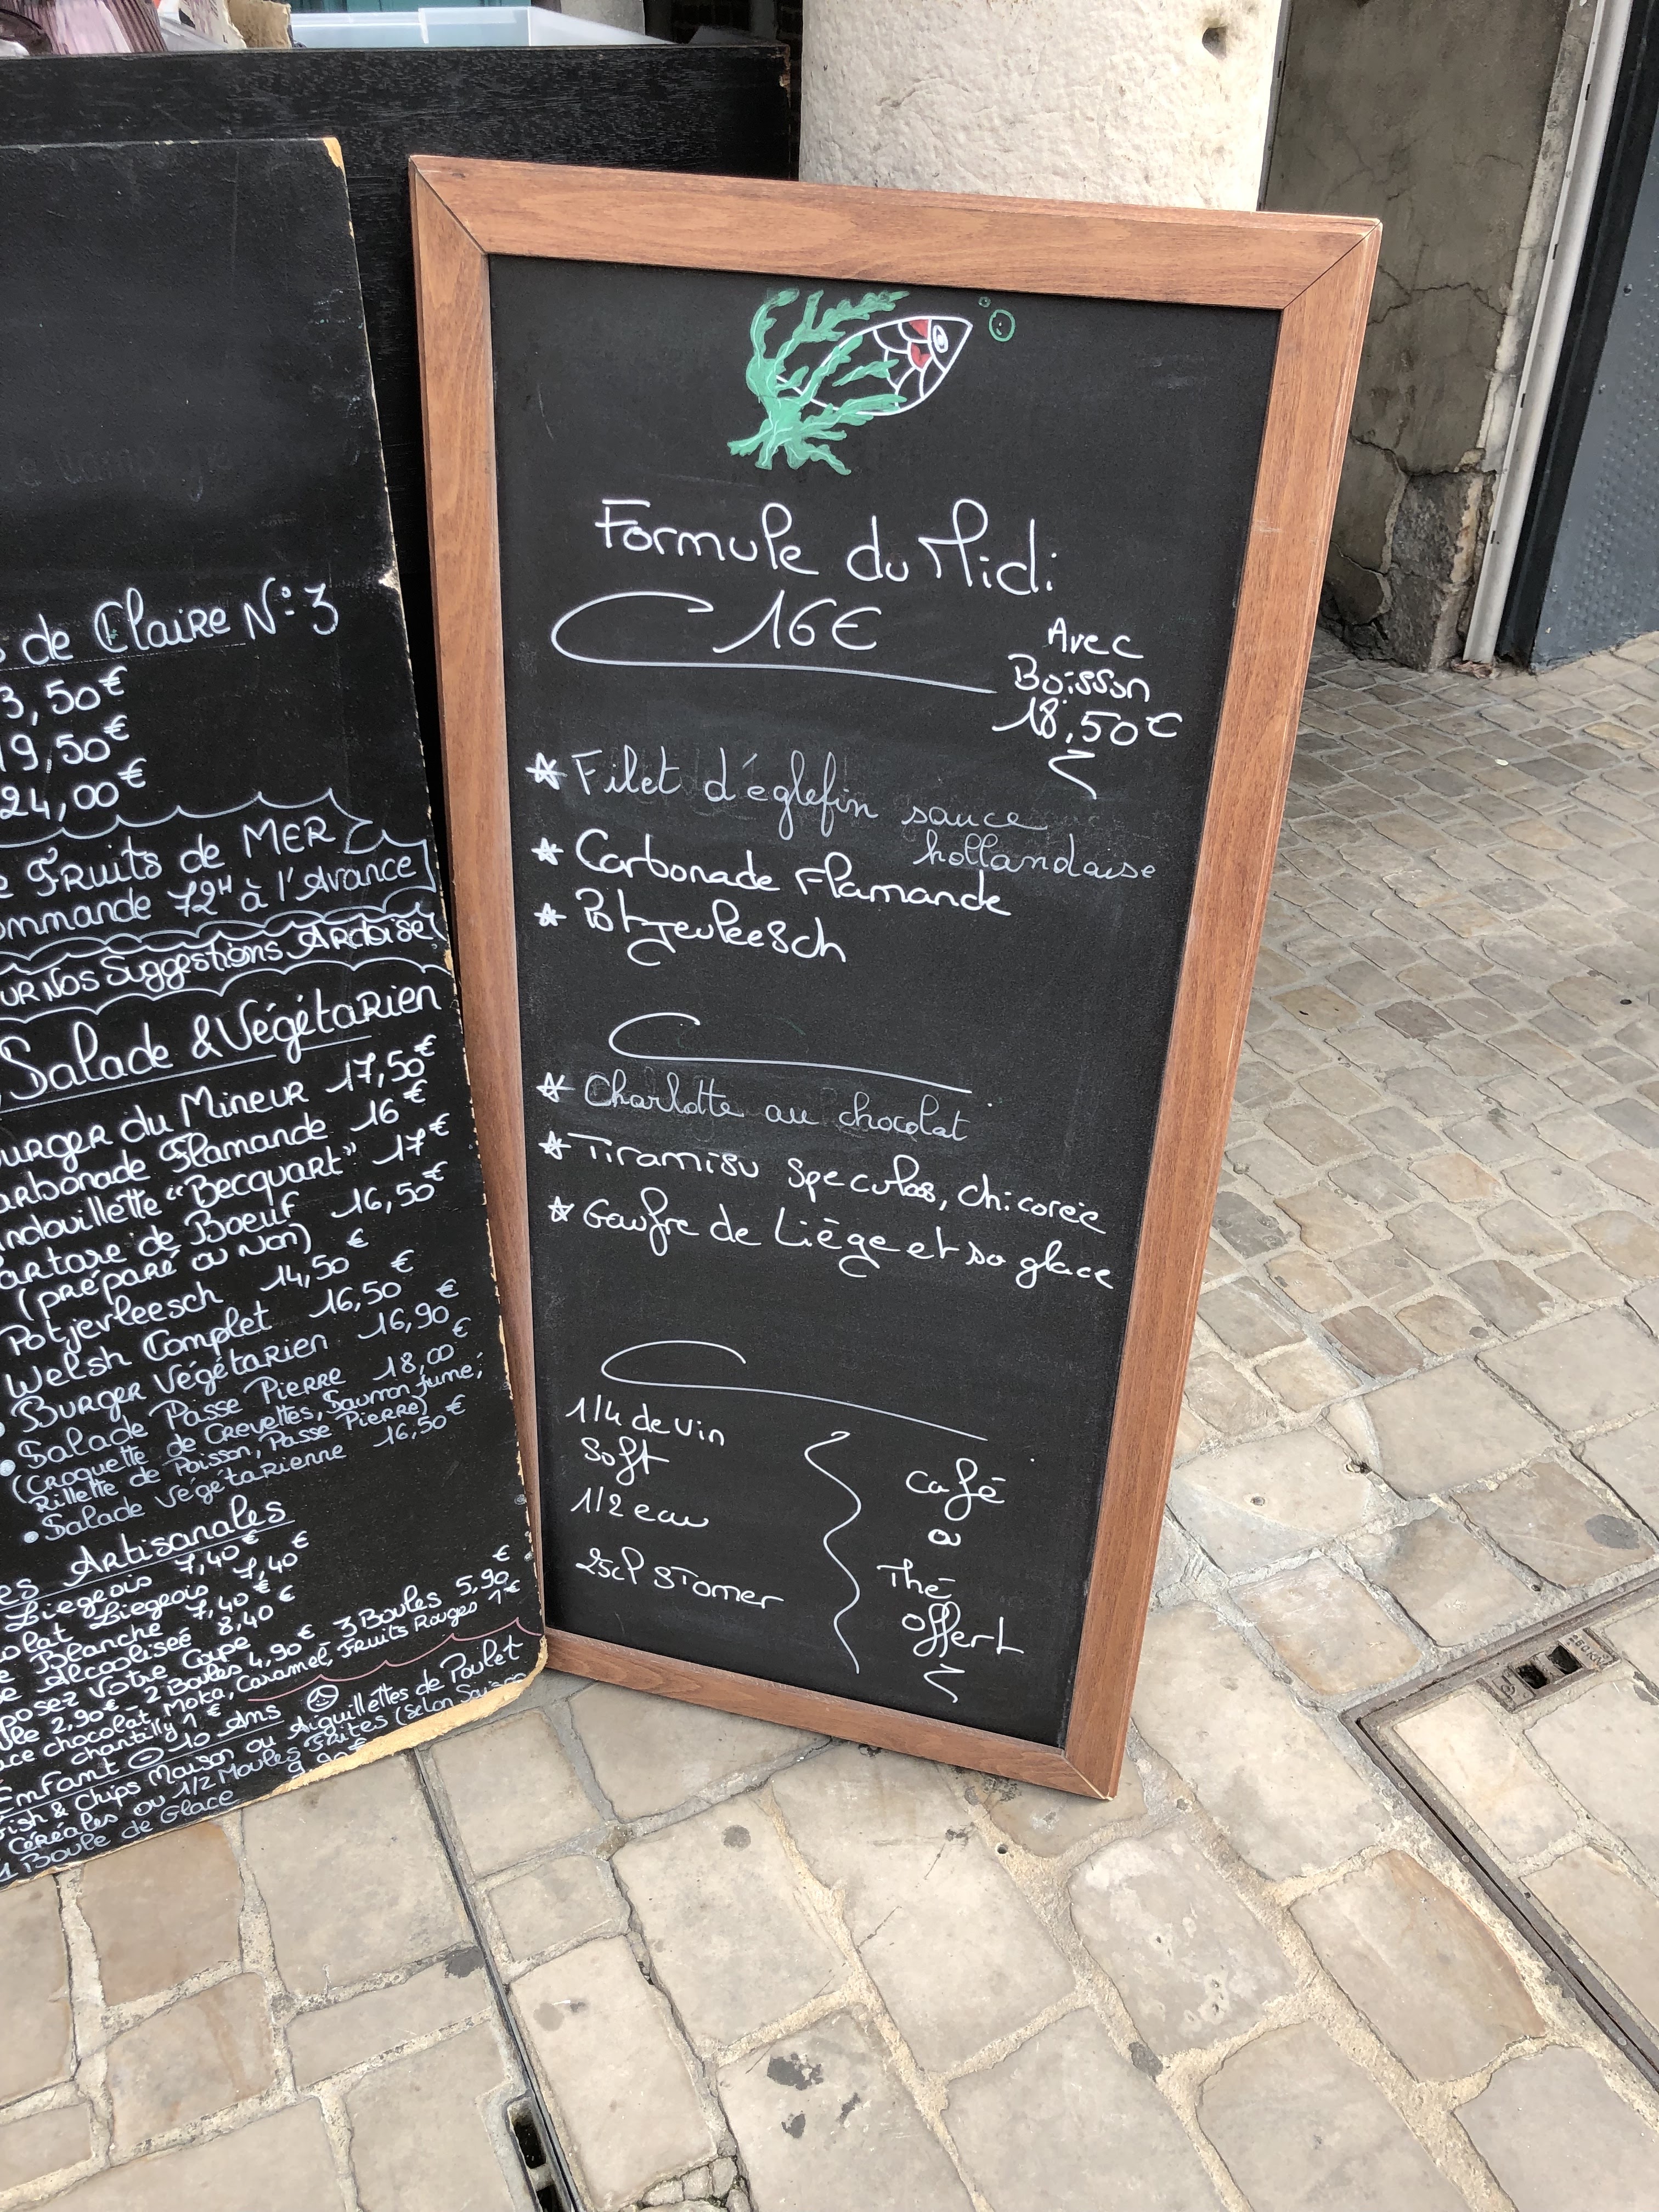 de Claire N°3
3,50€
19,50€
24,00€
Fruits de MER
72H à l'Avance
Nos Suggestions Ardoise
Salade & Végétarien
Burger du Mineur 17,50€
Carbonade Flamande 16€
Andouillette "Becquart" 17€
Tartare de Boeuf 16,50€
(préparé ou Non)
Potjevleesch 14,50€
Welsh Complet 16,50€
Burger Végétarien 16,90€
Salade Passe Pierre 18,00€
(Croquette de Crevettes, Saumon fumé,
Rillette de Poisson, Passe Pierre)
Salade végétarienne 16,50€
Artisanales
Liegeois 7,40€
Liegeois 7,40€
Blanche 7,40€
Alcoolisée 8,40€
Votre Coupe
2,90€ - 2 Boules 4,90€ 3 Boules 5,90€
chocolat, Moka, Caramel, Fruits Rouges 1€
chantilly 1€
Enfant - 10 Ans
Fish & Chips Maison ou Aiguillettes de Poulet
Céréales ou 1/2 Moules Frites (selon Saison
1 Boule de Glace 9,90€
Formule du Midi
16€
Avec
Boisson
18,50€
Filet d'églefin sauce
hollandaise
Carbonade Flamande
Potjevleesch
Charlotte au chocolat
Tiramisu Speculos, chicorée
Gaufre de Liège et sa glace
1/4 de vin
Soft
1/2 eau
25cl STomer
café
ou
Thé
offert